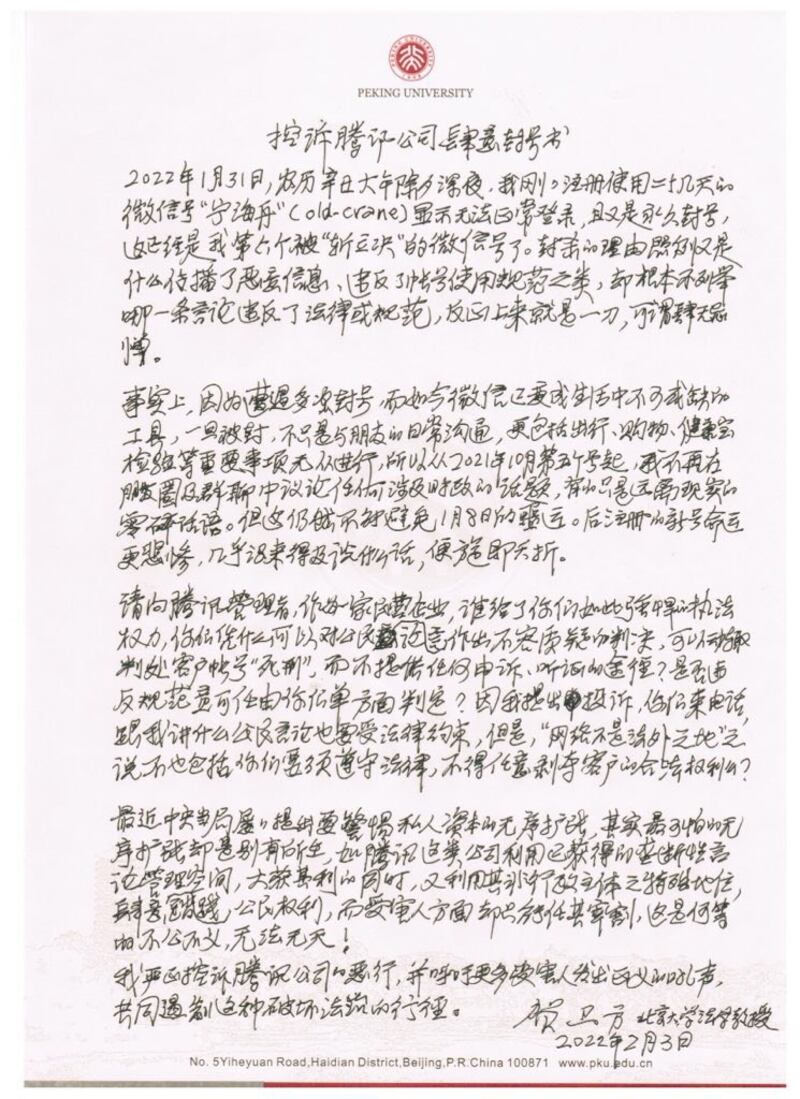 PEKING UNIVERSITY
控诉腾讯公司肆意封号书
2022年1月31日，农历辛丑大年除夕深夜，我刚刚注册使用二十几天的
微信号“宁海丹”（old-crane）显示无法正常登录，且又是永久封号，
这已经是我第六个被“斩立决”的微信号了。封杀的理由照例又是
什么传播了恶意信息、违反了帐号使用规范之类，却根本不列举
哪一条言论违反了法律或规范，反正上来就是一刀，可谓肆无忌
惮。
事实上，因为遭遇多次封号，而如今微信已变成生活中不可或缺的
工具，一旦被封，不只是与朋友的日常沟通，更包括出行、购物、健康宝
检验等重要事项无从进行，所以从2021年10月第五个号起，我不再在
朋友圈及群聊中议论任何涉及时政的话题，有的只是远离现实的
零碎话语。但这仍然不能避免1月8日的噩运。后注册的新号命运
更悲惨，几乎没来得及说什么话，便旋即夭折。
请问腾讯管理者，作为一家民营企业，谁给了你们如此强悍的执法
权力，你们凭什么可以对公民言论作出不容质疑的判决，可以动辄
判处客户帐号“死刑”，而不提供任何申诉、听证的途径？是否违
反规范岂可任由你们单方面判定？因我提出投诉，你们来电话，
跟我讲什么公民言论也要受法律约束，但是，“网络不是法外之地”之
说不也包括你们要须遵守法律，不得任意剥夺客户的合法权利么？
最近中央当局屡屡提出要警惕私人资本的无序扩张，其实最可怕的无
序扩张却是别有所在，如腾讯这类公司利用已获得的垄断性言
论管理空间，大获其利的同时，又利用其非行政主体之特殊地位，
肆意践踏公民权利，而受害人方面却只能任其宰割，这是何等
的不公不义，无法无天！
我严正控诉腾讯公司的恶行，并呼吁更多受害人发出正义的吼声，
共同遏制这种破坏法治的行径。
贺卫方 北京大学法学教授
2022年2月3日
No. 5Yiheyuan Road,Haidian District,Beijing,P.R.China 100871 www.pku.edu.cn